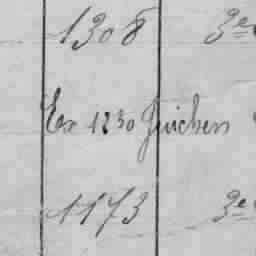 1308 3e
Ex 1230 Guichen
1173 3e